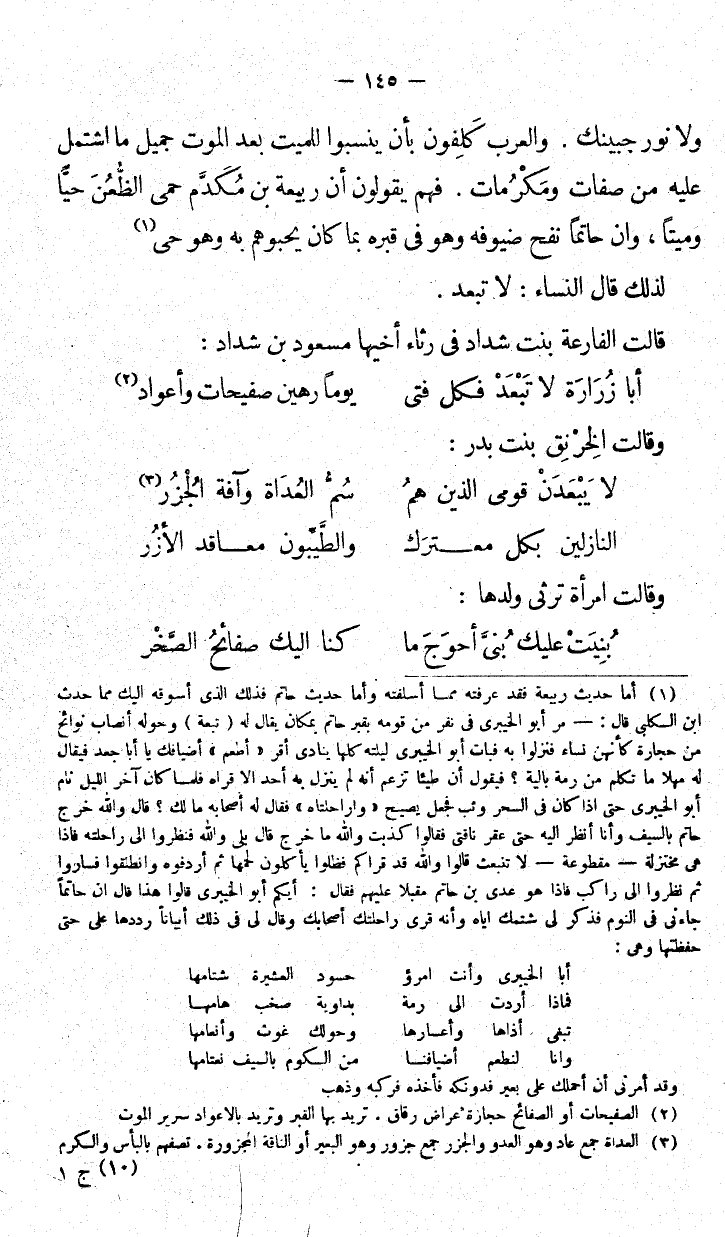 — ١٤٥ —
ولا نور جبينك . والعرب كَلِفون بأن ينسبوا للميت بعد الموت جميل ما اشتمل
عليه من صفات ومَكْرُمات . فهم يقولون أن ربيعة بن مُكَدَّم حمى الظُّعُنَ حيًّا
وميتاً ، وان حاتماً نفح ضيوفه وهو فى قبره بما كان يحبوهم به وهو حى (١)
لذلك قال النساء : لا تبعد .
قالت الفارعة بنت شداد فى رثاء أخيها مسعود بن شداد :
أبا زُرَارَة لا تَبْعَدْ فكل فتى يوماً رهين صفيحات وأعواد (٢)
وقالت الخِرْنِق بنت بدر :
لا يَبْعَدَنْ قومى الذين همُ سُمُّ العُدَاة وآفة الجُزُر (٣)
النازلين بكل معـــترَك والطَّيِّبون معـــاقد الأزُر
وقالت امرأة ترثى ولدها :
بُنِيَتْ عليك بُنىَّ أحوَجَ ما كنا اليك صفائحُ الصَّخْر
(١) أما حديث ربيعة فقد عرفته ممـا أسلفته وأما حديث حاتم فذلك الذى أسوقه اليك مما حدث
ابن الكلبى قال : — مر أبو الخيبرى فى نفر من قومه بقبر حاتم بمكان يقال له ( تبعة ) وحوله أنصاب نوائح
من حجارة كأنهن نساء فنزلوا به فبات أبو الخيبرى ليلته كلها ينادى أقر « أطعم » أضيافك يا أبا جعد فيقال
له مهلا ما تكلم من رمة بالية ؟ فيقول أن طيئا تزعم أنه لم ينزل به أحد الا قراه فلمـا كان آخر الليل نام
أبو الخيبرى حتى اذا كان فى السحر وثب فجعل يصيح « واراحلتاه » فقال له أصحابه ما لك ؟ قال والله خرج
حاتم بالسيف وأنا أنظر اليه حتى عقر ناقتى فقالوا كذبت والله ما خرج قال بلى والله فنظروا الى راحلته فاذا
هى مختزلة — مقطوعة — لا تنبعث قالوا والله قد قراكم فظلوا يأكلون لحمها ثم أردفوه وانطلقوا فساروا
ثم نظروا الى راكب فاذا هو عدى بن حاتم مقبلا عليهم فقال : أيكم أبو الخيبرى قالوا هذا قال ان حاتماً
جاءنى فى النوم فذكر لى شتمك اياه وأنه قرى راحلتك أصحابك وقال لى فى ذلك أبياتاً رددها على حتى
حفظتها وهى :
أبا الخيبرى وأنت امرؤ حسود العشيرة شتامها
فماذا أردت الى رمة بداوية صخب هامهـا
تبغى أذاها وأعسارها وحولك غوث وأنعامها
وانا لنطعم أضيافنـا من الكوم بالسيف نعتامها
وقد أمرنى أن أحملك على بعير فدونكه فأخذه فركبه وذهب
(٢) الصفيحات أو الصفائح حجارة عراض رقاق . تريد بها القبر وتريد بالاعواد سرير الموت
(٣) العداة جمع عاد وهو العدو والجزر جمع جزور وهو البعير أو الناقة المجزورة . تصفهم بالبأس والكرم
(١٠) ج ١